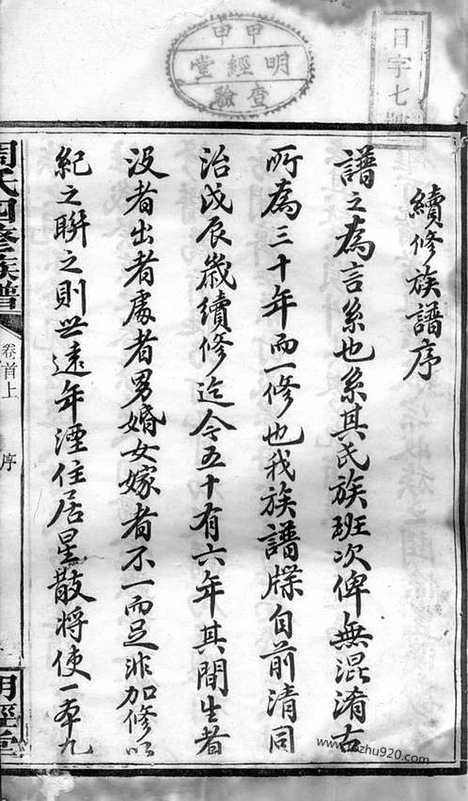 甲申
明經堂
查驗
日字七
續修族譜序
譜之為言系也系其氏族班次俾無混淆古
所為三十年而一修也我族譜牒自前清同
治戊辰歲續修迄今五十有六年其間生者
沒者出者處者男婚女嫁者不一而足非加修以
紀之聯之則世遠年湮住居星散將使一本九
周氏四修族譜
卷首上
序
明經堂
www.jiazhu920.com